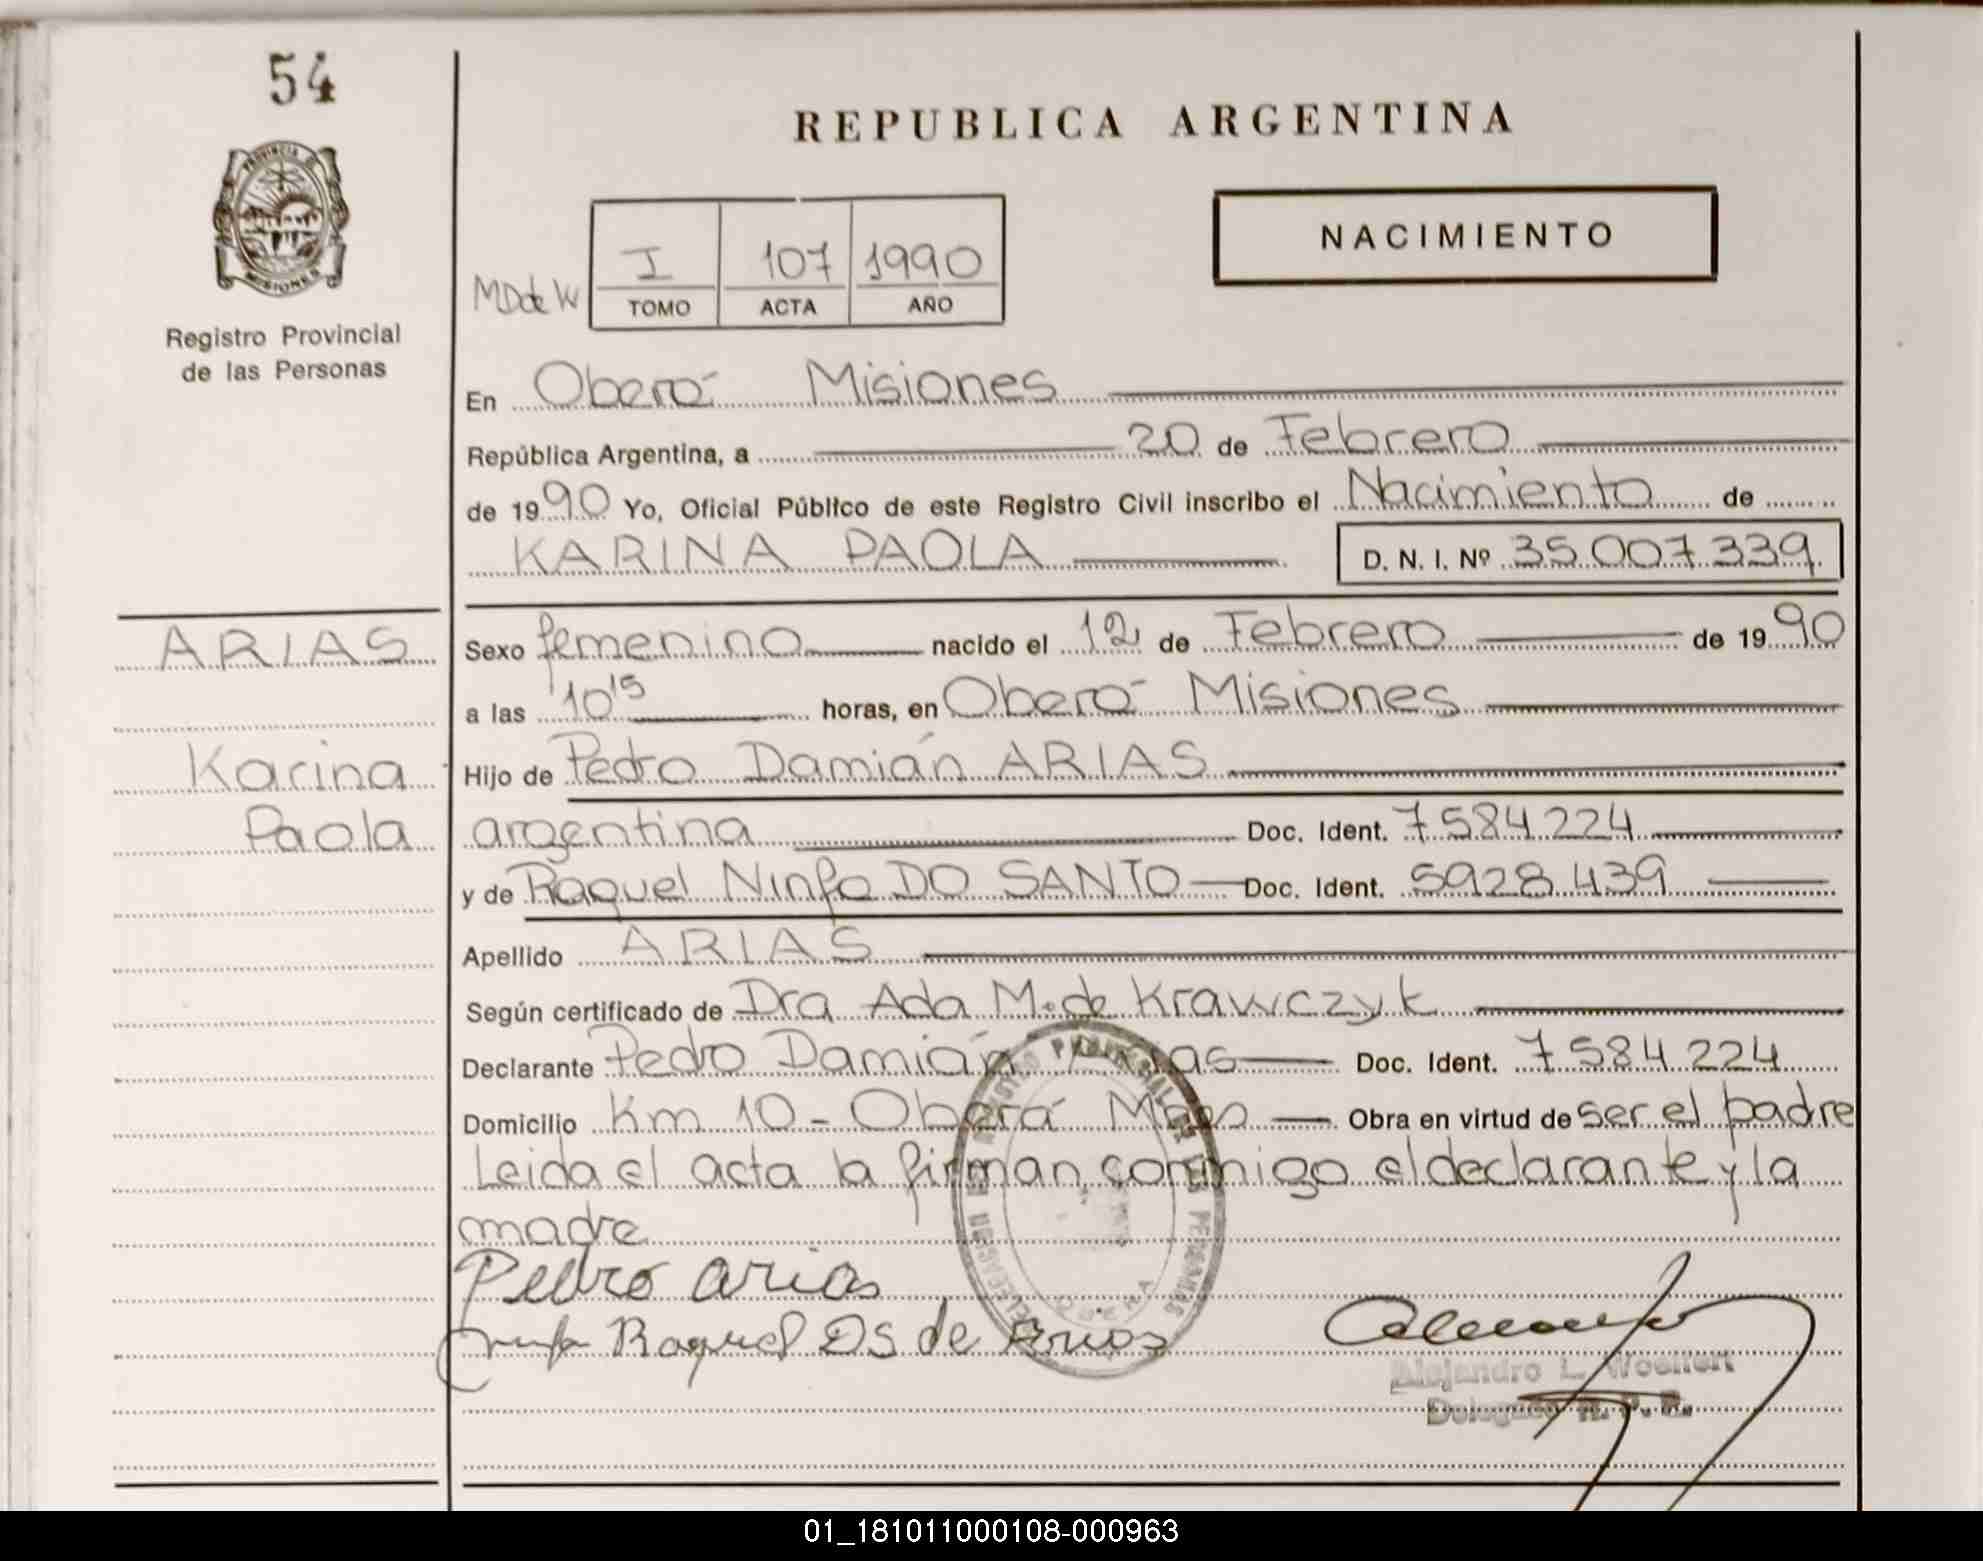 54
PROVINCIA DE
MISIONES
Registro Provincial
de las Personas
REPUBLICA ARGENTINA
NACIMIENTO
MD de W
I 107 1990
TOMO ACTA AÑO
En Oberá Misiones
República Argentina, a 20 de Febrero
de 1990 Yo, Oficial Público de este Registro Civil inscribo el Nacimiento de
KARINA PAOLA D. N. I. Nº 35.007.339
ARIAS
Karina
Paola
Sexo femenino nacido el 12 de Febrero de 1990
a las 10 15 horas, en Oberá Misiones
Hijo de Pedro Damián ARIAS
argentina Doc. Ident. 7584224
y de Raquel Ninfa DO SANTO Doc. Ident. 5928439
Apellido ARIAS
Según certificado de Dra Ada M. de Krawczyk
Declarante Pedro Damián Arias Doc. Ident. 7584224
Domicilio Km 10 - Oberá Mnes Obra en virtud de ser el padre
Leida el acta la firman conmigo el declarante y la
madre
Pedro arias
Raquel DS de Arias
Alejandro L. Woellert
Delegado R. P. P.
01_181011000108-000963